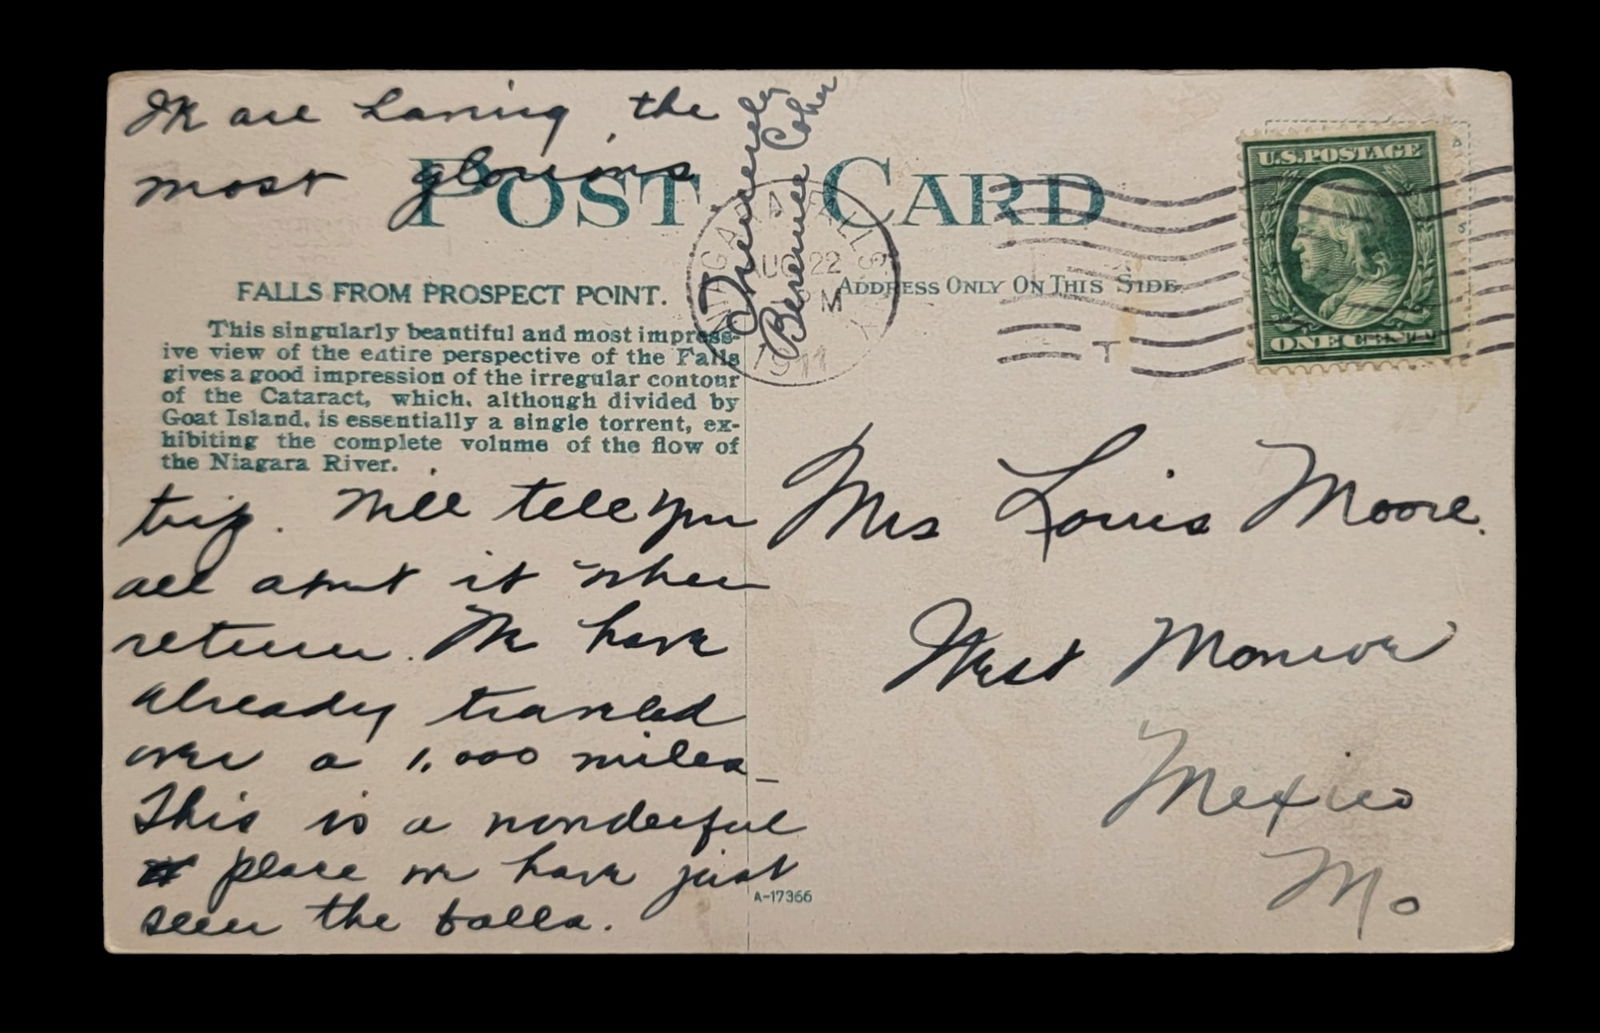 We are having the
most glorious
POST CARD
Sincerely
Berenice Coher
NIAGARA FALLS
AUG 22
PM
N.Y.
1911
U.S. POSTAGE
ONE CENT
FALLS FROM PROSPECT POINT.
ADDRESS ONLY ON THIS SIDE.
This singularly beautiful and most impress-
ive view of the entire perspective of the Falls
gives a good impression of the irregular contour
of the Cataract, which, although divided by
Goat Island, is essentially a single torrent, ex-
hibiting the complete volume of the flow of
the Niagara River.
T
trip. Will tell you
all about it when
return. We have
already traveled
over a 1,000 miles_
This is a wonderful
place we have just
seen the falls.
A-17366
Mrs Louis Moore.
West Monroe
Mexico
Mo